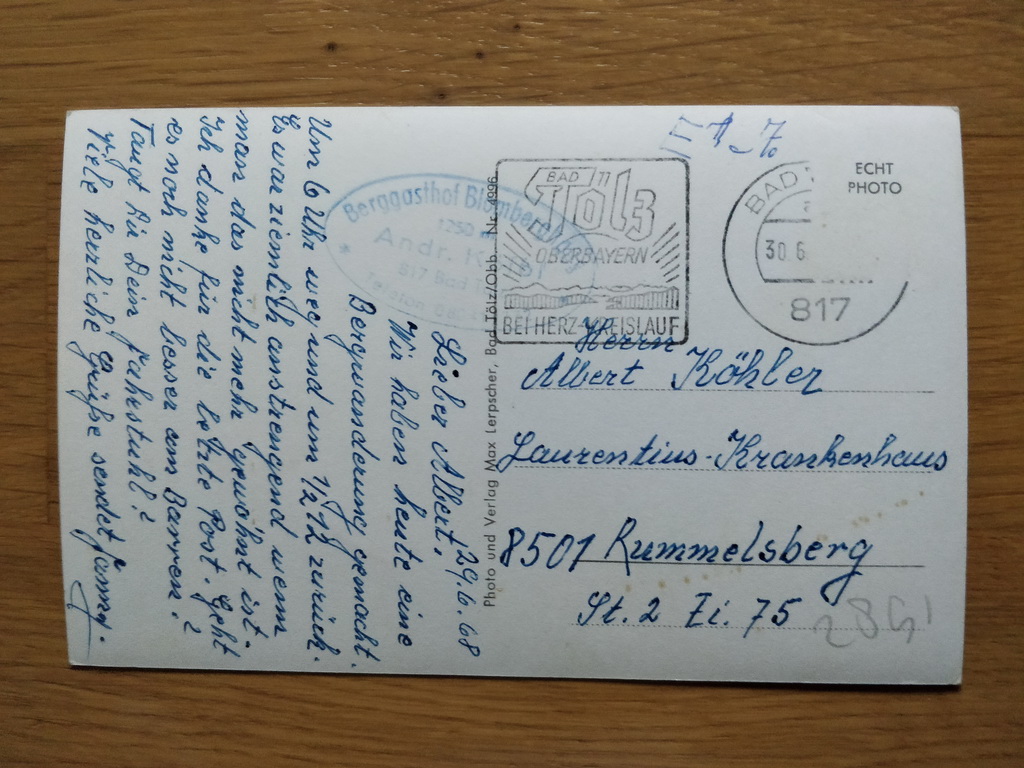 29.6.68
Lieber Albert.
Wir haben heute eine
Bergwanderung gemacht.
Um 6 Uhr weg und um 1/2 12 zurück.
Es war ziemlich anstrengend wenn
man das nicht mehr gewöhnt ist.
Ich danke für die letzte Post. Geht
es noch nicht besser am Barren?
Taugt Dir Dein Fahrstuhl?
Viele herrliche Grüße sendet
Berggasthof
1250 m
Andr.
817 Bad
Telefon
Photo und Verlag Max Lerpscher, Bad Tölz/Obb. Nr.
BAD
Tölz
OBERBAYERN
BEI HERZ-KREISLAUF
BAD
30.6
817
ECHT
PHOTO
Herrn
Albert Köhler
Laurentius-Krankenhaus
8501 Rummelsberg
St. 2 Zi. 75